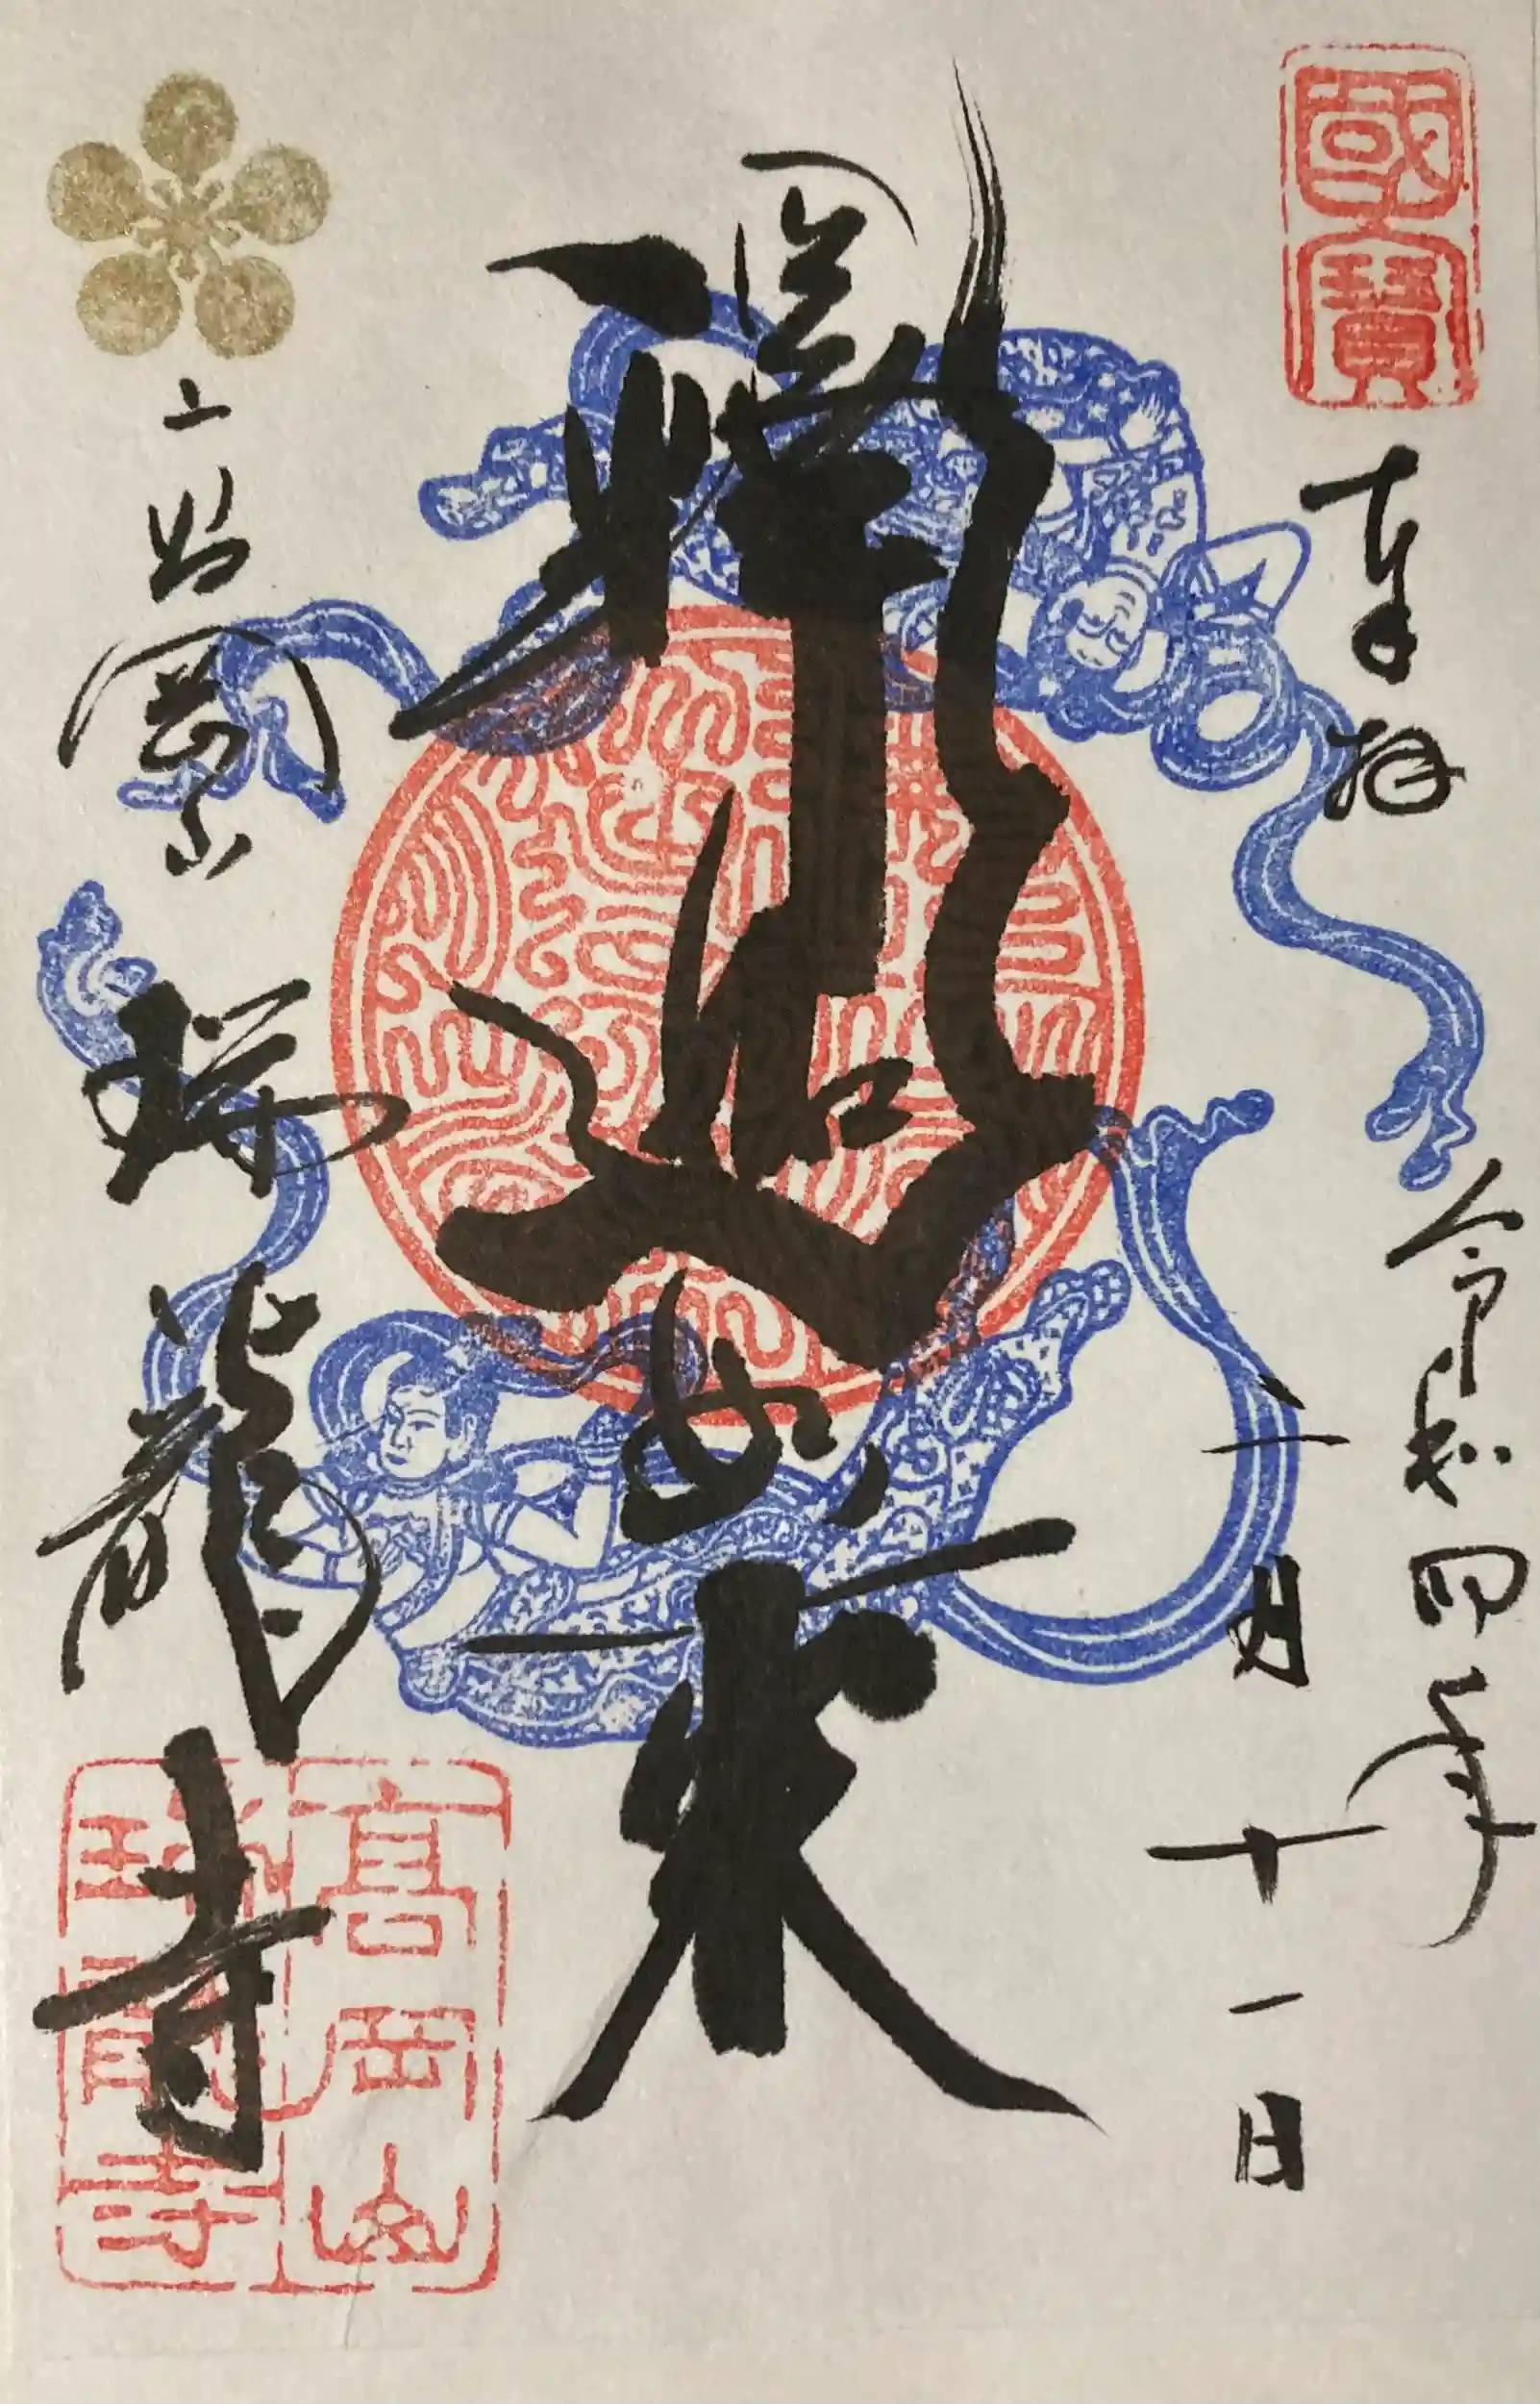 國寶
奉拝
令和四年
二月十一日
釋迦如来
高岡山
瑞龍寺
高岡山
瑞龍寺